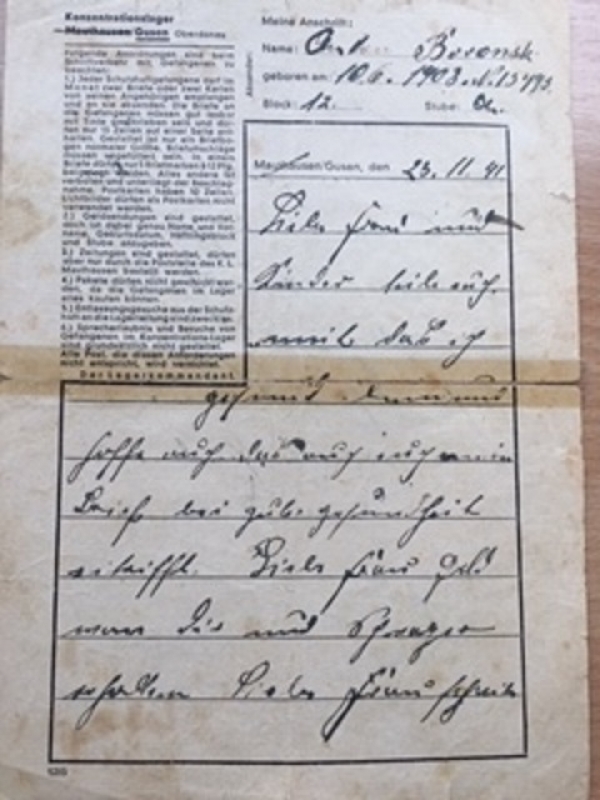 Konzentrationslager
Mauthausen/Gusen Oberdonau
Folgende Anordnungen sind beim
Schriftverkehr mit Gefangenen zu
beachten:
1.) Jeder Schutzhaftgefangene darf im
Monat zwei Briefe oder zwei Karten
von seinen Angehörigen empfangen
und an sie absenden. Die Briefe an
die Gefangenen müssen gut lesbar
mit Tinte geschrieben sein und dür-
fen nur 15 Zeilen auf einer Seite ent-
halten. Gestattet ist nur ein Briefbo-
gen normaler Größe. Briefumschläge
müssen ungefüttert sein. In einem
Briefe dürfen nur 5 Briefmarken à 12 Pfg.
beigelegt werden. Alles andere ist
verboten und unterliegt der Beschlag-
nahme. Postkarten haben 10 Zeilen.
Lichtbilder dürfen als Postkarten nicht
verwendet werden.
2.) Geldsendungen sind gestattet,
doch ist dabei genau Name, und Vor-
name, Geburtsdatum, Häftlingsblock
und Stube anzugeben.
3.) Zeitungen sind gestattet, dürfen
aber nur durch die Poststelle des K. L.
Mauthausen bestellt werden.
4.) Pakete dürfen nicht geschickt wer-
den, da die Gefangenen im Lager
alles kaufen können.
5.) Entlassungsgesuche aus der Schutz-
haft an die Lagerleitung sind zwecklos.
6.) Sprecherlaubnis und Besuche von
Gefangenen im Konzentrations-Lager
sind grundsätzlich nicht gestattet.
Alle Post, die diesen Anforderungen
nicht entspricht, wird vernichtet.
Der Lagerkommandant.
Absender:
Meine Anschrift:
Name: Boronsk
geboren am: 10.6. 1903 Nr. 13493
Block: 12. Stube:
Mauthausen/Gusen, den 23. 11. 41
Liebe Frau und
Kinder teile euch
mit das ich
gesund bin und
hoffe auch das auch euch mein
Brief bei gute gesundheit
eintrifft. Liebe Frau
von dir und
erhalten Liebe Frau schreib